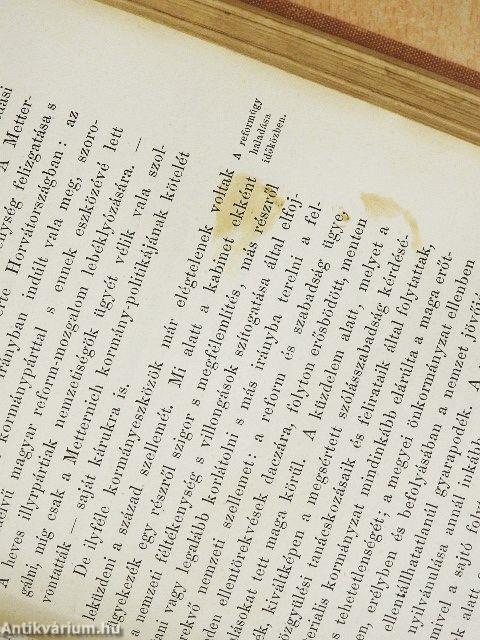 A reformügy
haladása
időközben.
dási
A Metter-
nység felizgatása s
rte Horvátországban: az
irányban indúlt vala meg, szoro-
kormánypárttal s ennek eszközévé lett
magyar reform-mozgalom lebéklyózására. —
A heves illyrpártiak nemzetiségök ügyét vélik vala szol-
gálni, míg csak a Metternich kormány-politikájának kötelét
vontatták — saját kárukra is.
De ilyféle kormányeszközök már elégtelenek voltak
leküzdeni a század szellemét. Mi alatt a kabinet ekként
igyekezék egy részről szigor s megfélemlítés, más részről
a nemzeti féltékenység s villongások szítogatása által elfoj-
tani vagy legalább korlátolni s más irányba terelni a fel-
rekvő nemzeti szellemet: a reform és szabadság ügye,
den ellentörekvések daczára, folyton erősbödött, menten
dalásokat tett maga körül. A küzdelem alatt, melyet a
ek, kiváltképen a megsértett szólásszabadság kérdésé
zgyűlési tanácskozásaik és felirataik által folytattak,
rmális kormányzat mindinkább elárulta a maga erőt-
s tehetetlenségét; a megyei önkormányzat ellenben
en, erélyben és befolyásában a nemzet jövőjé
ellentállhatatlanúl gyarapodék. A
nyilvánulása annál inkább
mivel a sajtó foly
k alatt
Antikvárium.hu